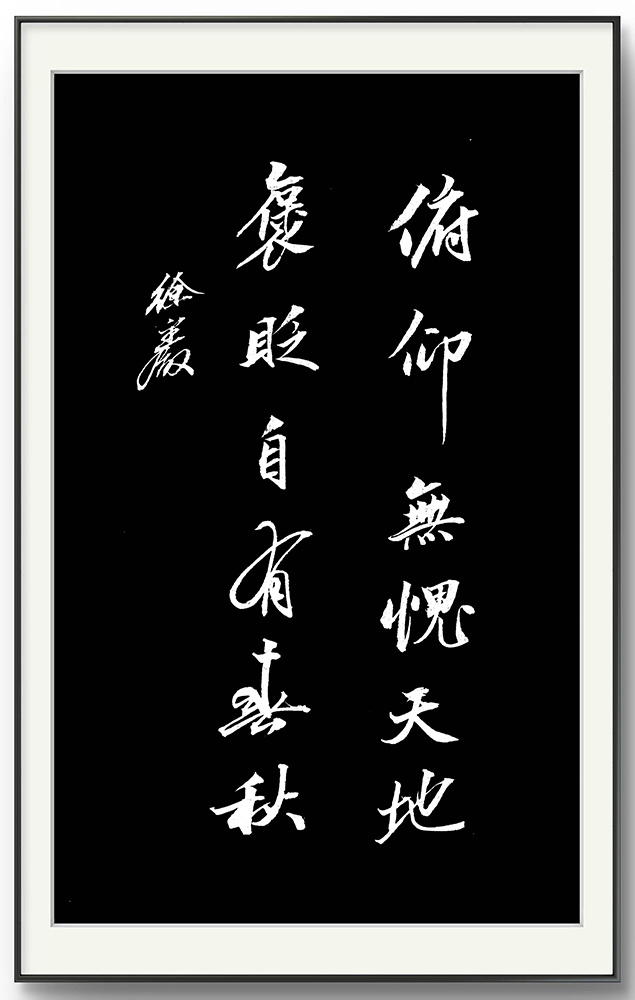 俯仰無愧天地
褒眨自有春秋
徐